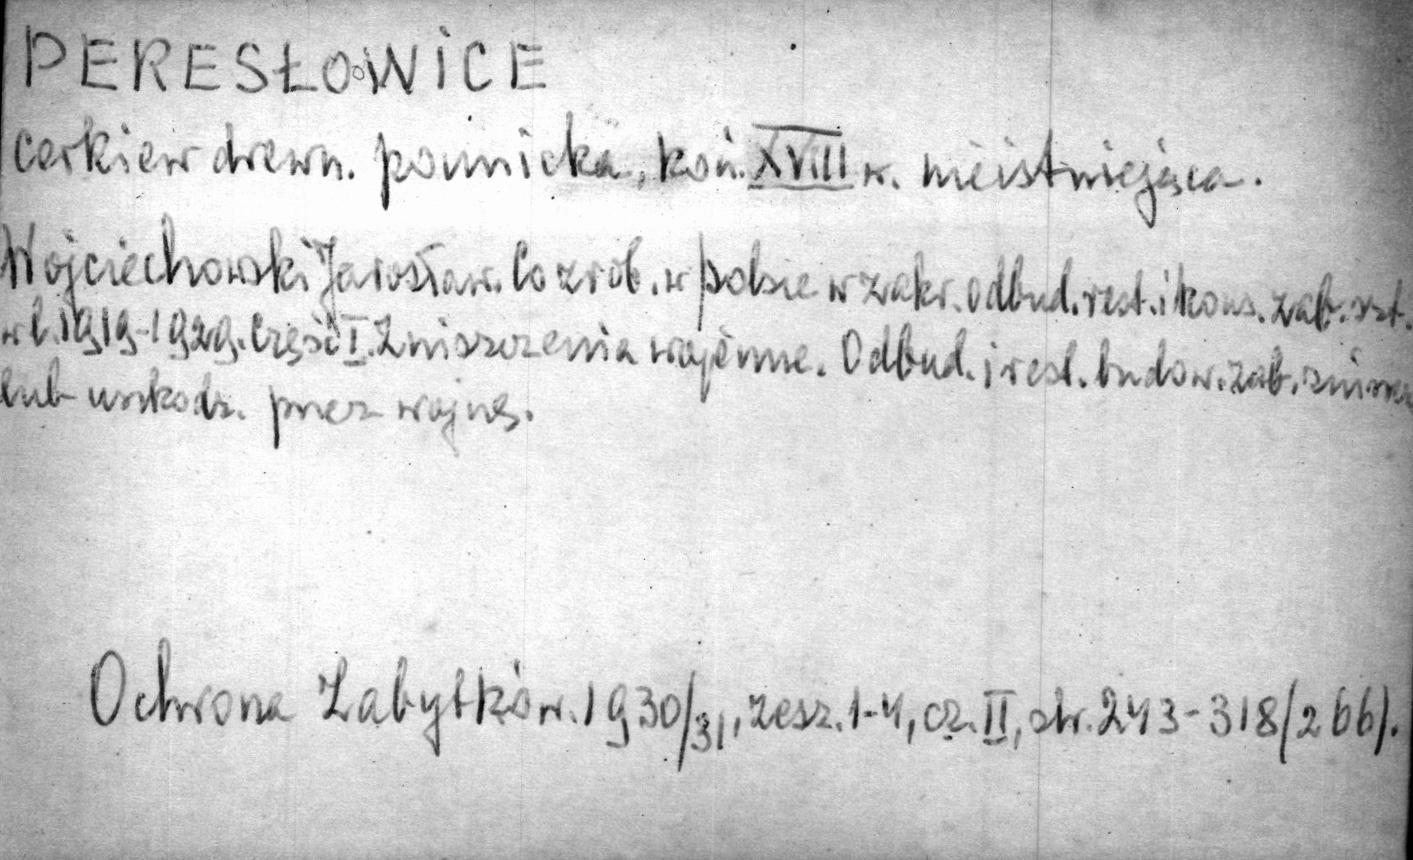 PERESŁOWICE
cerkiew drewn. pounicka, koń. XVIII w. nieistniejąca.
Wojciechowski Jarosław. Co zrob. w Polsce w zakr. odbud. rest. i kons. zab. szt.
w l. 1919-1929. Część I. Zniszczenia wojenne. Odbud. i rest. budow. zab. zniszcz
lub uszkodz. przez wojnę.
Ochrona Zabytków. 1930/31, zesz. 1-4, cz. II, str. 243-318/266).